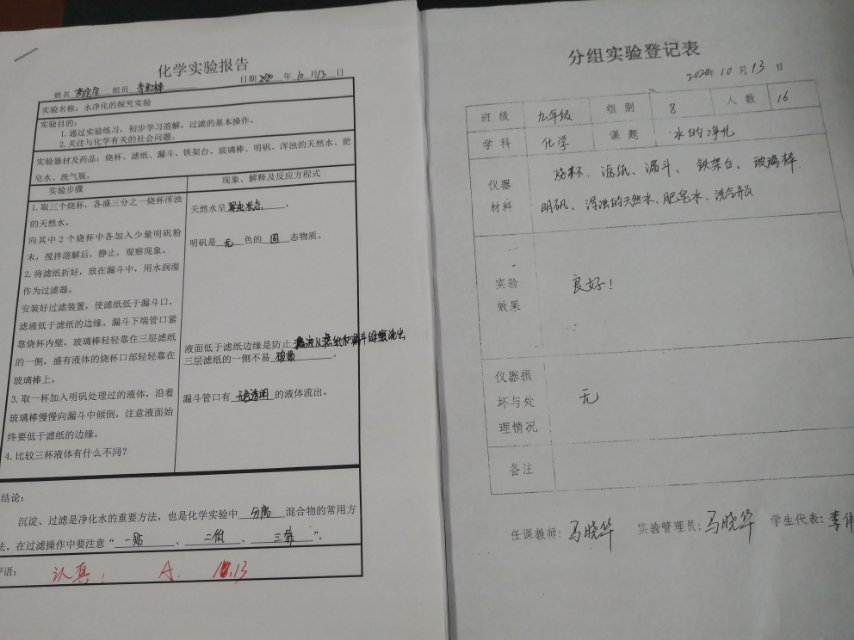 化学实验报告
姓名 组员 日期 2020 年 10 月 13 日
实验名称：水净化的探究实验
实验目的：
1.通过实验练习，初步学习溶解、过滤的基本操作。
2.关注与化学有关的社会问题。
实验器材及药品：烧杯、滤纸、漏斗、铁架台、玻璃棒、明矾、浑浊的天然水、肥
皂水、洗气瓶。
实验步骤
现象、解释及反应方程式
1.取三个烧杯，各盛三分之一烧杯浑浊
的天然水。
向其中 2 个烧杯中各加入少量明矾粉
末，搅拌溶解后，静止，观察现象。
2.将滤纸折好，放在漏斗中，用水润湿
作为过滤器。
安装好过滤装置，使滤纸低于漏斗口，
滤液低于滤纸的边缘。漏斗下端管口紧
靠烧杯内壁，玻璃棒轻轻靠住三层滤纸
的一侧，盛有液体的烧杯口部轻轻靠在
玻璃棒上。
3.取一杯加入明矾处理过的液体，沿着
玻璃棒慢慢向漏斗中倾倒，注意液面始
终要低于滤纸的边缘。
4.比较三杯液体有什么不同？
天然水呈 。
明矾是 无 色的 固 态物质。
液面低于滤纸边缘是防止 液从滤纸和漏斗缝隙流出
三层滤纸的一侧不易 。
漏斗管口有 无色透明 的液体流出。
结论：
沉淀、过滤是净化水的重要方法，也是化学实验中 分离 混合物的常用方
法，在过滤操作中要注意“ 一贴 、 二低 、 三靠 ”。
评语： 认真！ A. 10.13
分组实验登记表
2020年 10 月 13 日
班级 九年级 组别 8 人数 16
学科 化学 课题 水的净化
仪器
材料
烧杯、滤纸、漏斗、铁架台、玻璃棒
明矾、浑浊的天然水、肥皂水、洗气瓶
实验
效果
良好！
仪器损
坏与处
理情况
无
备注
任课教师：马晓华 实验管理员：马晓华 学生代表：李伟